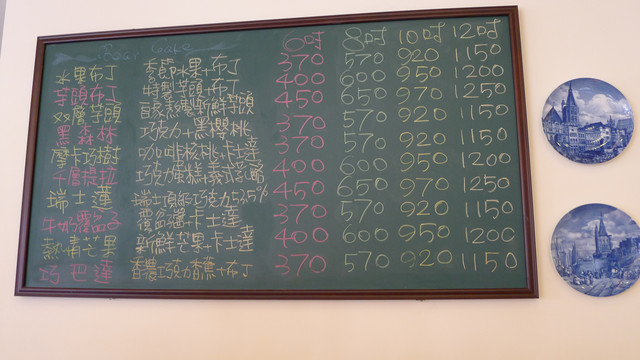 Cake 6吋 8吋 10吋 12吋
水果布丁 季節水果+布丁 370 570 920 1150
芋頭布丁 特製芋頭+布丁 400 600 950 1200
双層芋頭 自家熬製新鮮芋頭 450 650 970 1250
黑森林 巧克力+黑櫻桃 370 570 920 1150
摩卡巧樹 咖啡核桃+卡士達 370 570 920 1150
千層提拉 巧克力蛋糕義式 400 600 950 1200
瑞士蓮 瑞士頂級巧克力55% 450 650 970 1250
牛奶 子 +卡士達 370 570 920 1150
熱情芒果 新鮮芒果+卡士達 400 600 950 1200
巧巴達 香濃巧克力香蕉+布丁 370 570 920 1150